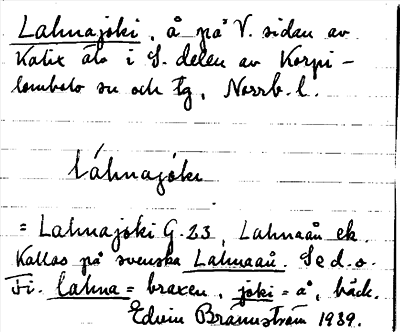 Lahnajoki, å på V. sidan av
Kalix älv i S. delen av Korpi-
lombolo sn och tg, Norrb. l.
láhnajóki
= Lahnajoki G. 23, Lahnaån ek.
Kallas på svenska Lahnaån. Se d. o.
Fi. lahna = braxen, joki = å, bäck.
Edvin Brännström 1939.